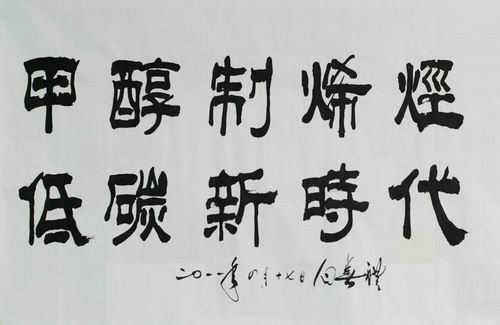 甲醇制烯烴
低碳新時代
二〇一一年四月十七日 白春禮